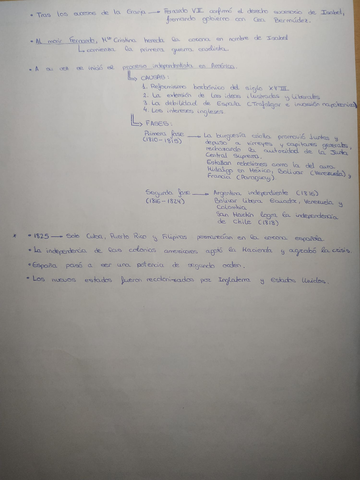 • Tras los sucesos de la Granja → Fernando VII confirmó el derecho sucesorio de Isabel,
formando gobierno con Cea Bermúdez.
• Al morir Fernando, Mª Cristina hereda la corona en nombre de Isabel
↳ comienza la primera guerra carlista.
• A su vez se inició el proceso independentista en América
↳ CAUSAS:
1. Reformismo borbónico del siglo XVIII.
2. La extensión de las ideas ilustradas y liberales
3. La debilidad de España (Trafalgar e invasión napoleónica)
4. Los intereses ingleses.
↳ FASES:
Primera fase → La burguesía criolla promovió Juntas y
(1810-1815) depuso a virreyes y capitanes generales,
rechazando la autoridad de la Junta
Central Suprema.
Estallan rebeliones como la del cura
Hidalgo en México, Bolívar (Venezuela), y
Francia (Paraguay)
Segunda fase → Argentina independiente (1816)
(1816-1824) Bolívar libera Ecuador, Venezuela y
Colombia
San Martín logra la independencia
de Chile (1818)
• 1825 → Solo Cuba, Puerto Rico y Filipinas permanecían en la corona española.
• La independencia de las colonias americanas agotó la Hacienda y agravó la crisis.
• España pasó a ser una potencia de segundo orden.
• Los nuevos estados fueron recolonizados por Inglaterra y Estados Unidos.